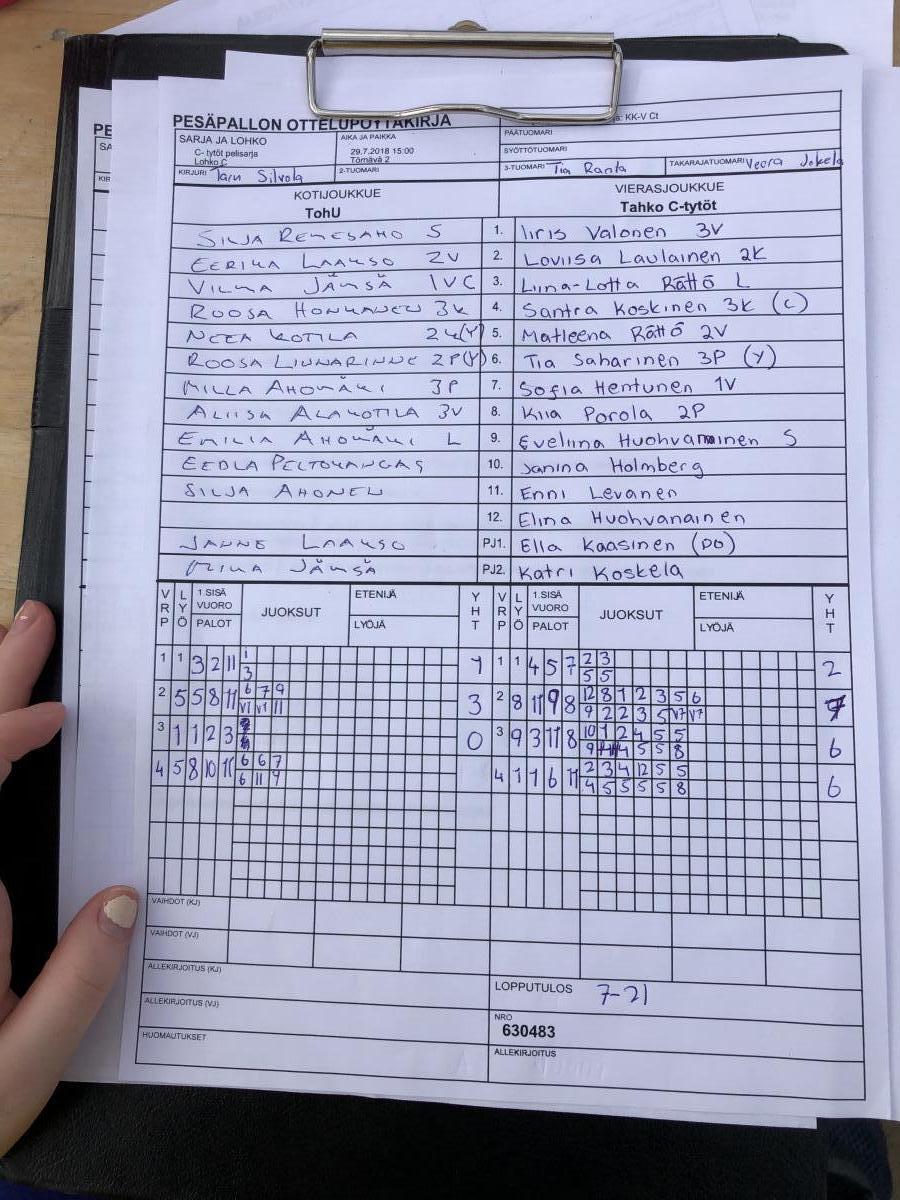 PESÄPALLON OTTELUPÖYTÄKIRJA
KK-V Ct
SARJA JA LOHKO
C- tytöt pelisarja
Lohko C
AIKA JA PAIKKA
29.7.2018 15:00
Törnävä 2
PÄÄTUOMARI
SYÖTTÖTUOMARI
KIRJURI Taru Silvola
2-TUOMARI
3-TUOMARI Tia Ranta
TAKARAJATUOMARI Veera Jokela
KOTIJOUKKUE
TohU
VIERASJOUKKUE
Tahko C-tytöt
SILJA REMESAHO S 1. Iiris Valonen 3V
EERIKA LAAKSO 2V 2. Loviisa Laulainen 2K
VILMA JÄMSÄ 1V C 3. Liina-Lotta Rättö L
ROOSA HONKANEN 3K 4. Santra Koskinen 3K (C)
NEEA KOTILA 2K(Y) 5. Matleena Rättö 2V
ROOSA LINNARINNE 2P(Y) 6. Tia Saharinen 3P (Y)
MILLA AHOMÄKI 3P 7. Sofia Hentunen 1V
ALIISA ALAKOTILA 3V 8. Kiia Porola 2P
EMILIA AHOMÄKI L 9. Eveliina Huohvanainen S
EEDLA PELTOKANGAS 10. Janina Holmberg
SILJA AHONEN 11. Enni Levanen
12. Elina Huohvanainen
JANNE LAAKSO PJ1. Ella Kaasinen (PO)
MIKA JÄMSÄ PJ2. Katri Koskela
VRP LYÖ 1.SISÄ VUORO PALOT JUOKSUT ETENIJÄ LYÖJÄ YHT VRP LYÖ 1.SISÄ VUORO PALOT JUOKSUT ETENIJÄ LYÖJÄ YHT
1 1 3 2 11 1 1 1 1 4 5 7 2 3 2
3 5 5
2 5 5 8 11 6 7 9 3 2 8 11 9 8 12 8 1 2 3 5 6 7
V1 V1 11 9 2 2 3 5 V7 V7
3 1 1 2 3 0 3 9 3 11 8 10 1 2 4 5 5 6
9 4 5 5 8
4 5 8 10 11 6 6 7 4 1 1 6 11 2 3 4 12 5 5 6
6 11 9 4 5 5 5 5 8
VAIHDOT (KJ)
VAIHDOT (VJ)
ALLEKIRJOITUS (KJ)
ALLEKIRJOITUS (VJ)
HUOMAUTUKSET
LOPPUTULOS 7-21
NRO
630483
ALLEKIRJOITUS